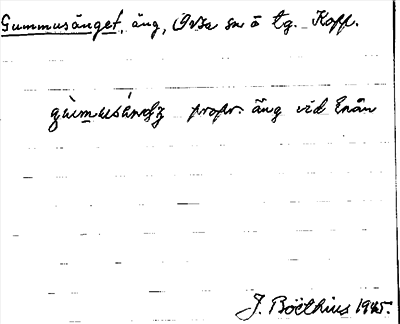 Gummusänget, äng, Orsa sn o tg. Kopp.
gùmusáŋgɜ propr. äng vid Enån
J. Boëthius 1945.